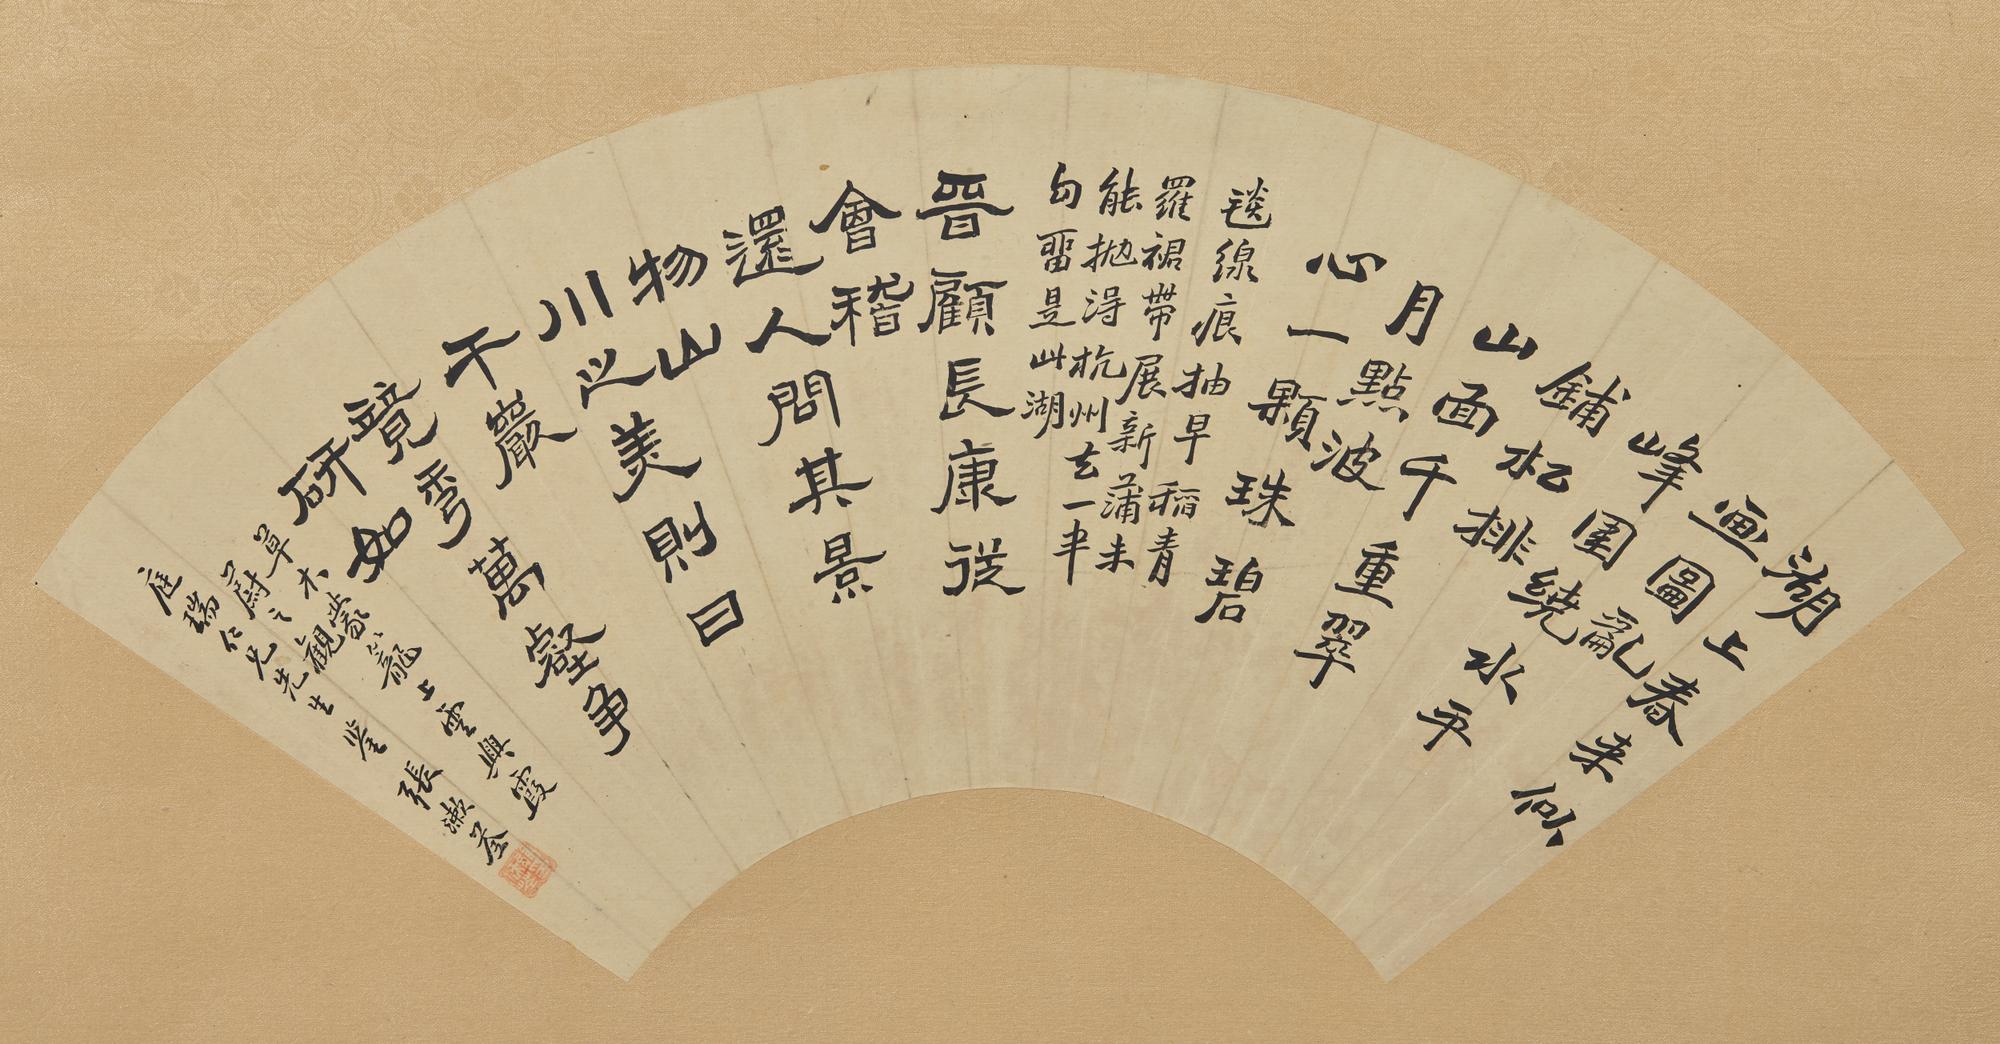 湖上春来似
画圖亂
峰圍繞水平
鋪松排
山面千重翠
月點波
心一顆珠碧
毯線痕抽早稻青
羅裙帶展新蒲未
能抛得杭州去一半
勾留是此湖
晉顧長康從
會稽
還人問其景
物山
川之美則曰
千巖
競秀萬壑爭
研如
草木蒙籠上雲興霞
蔚之觀
庭瑞仁兄先生鉴 張漱荃